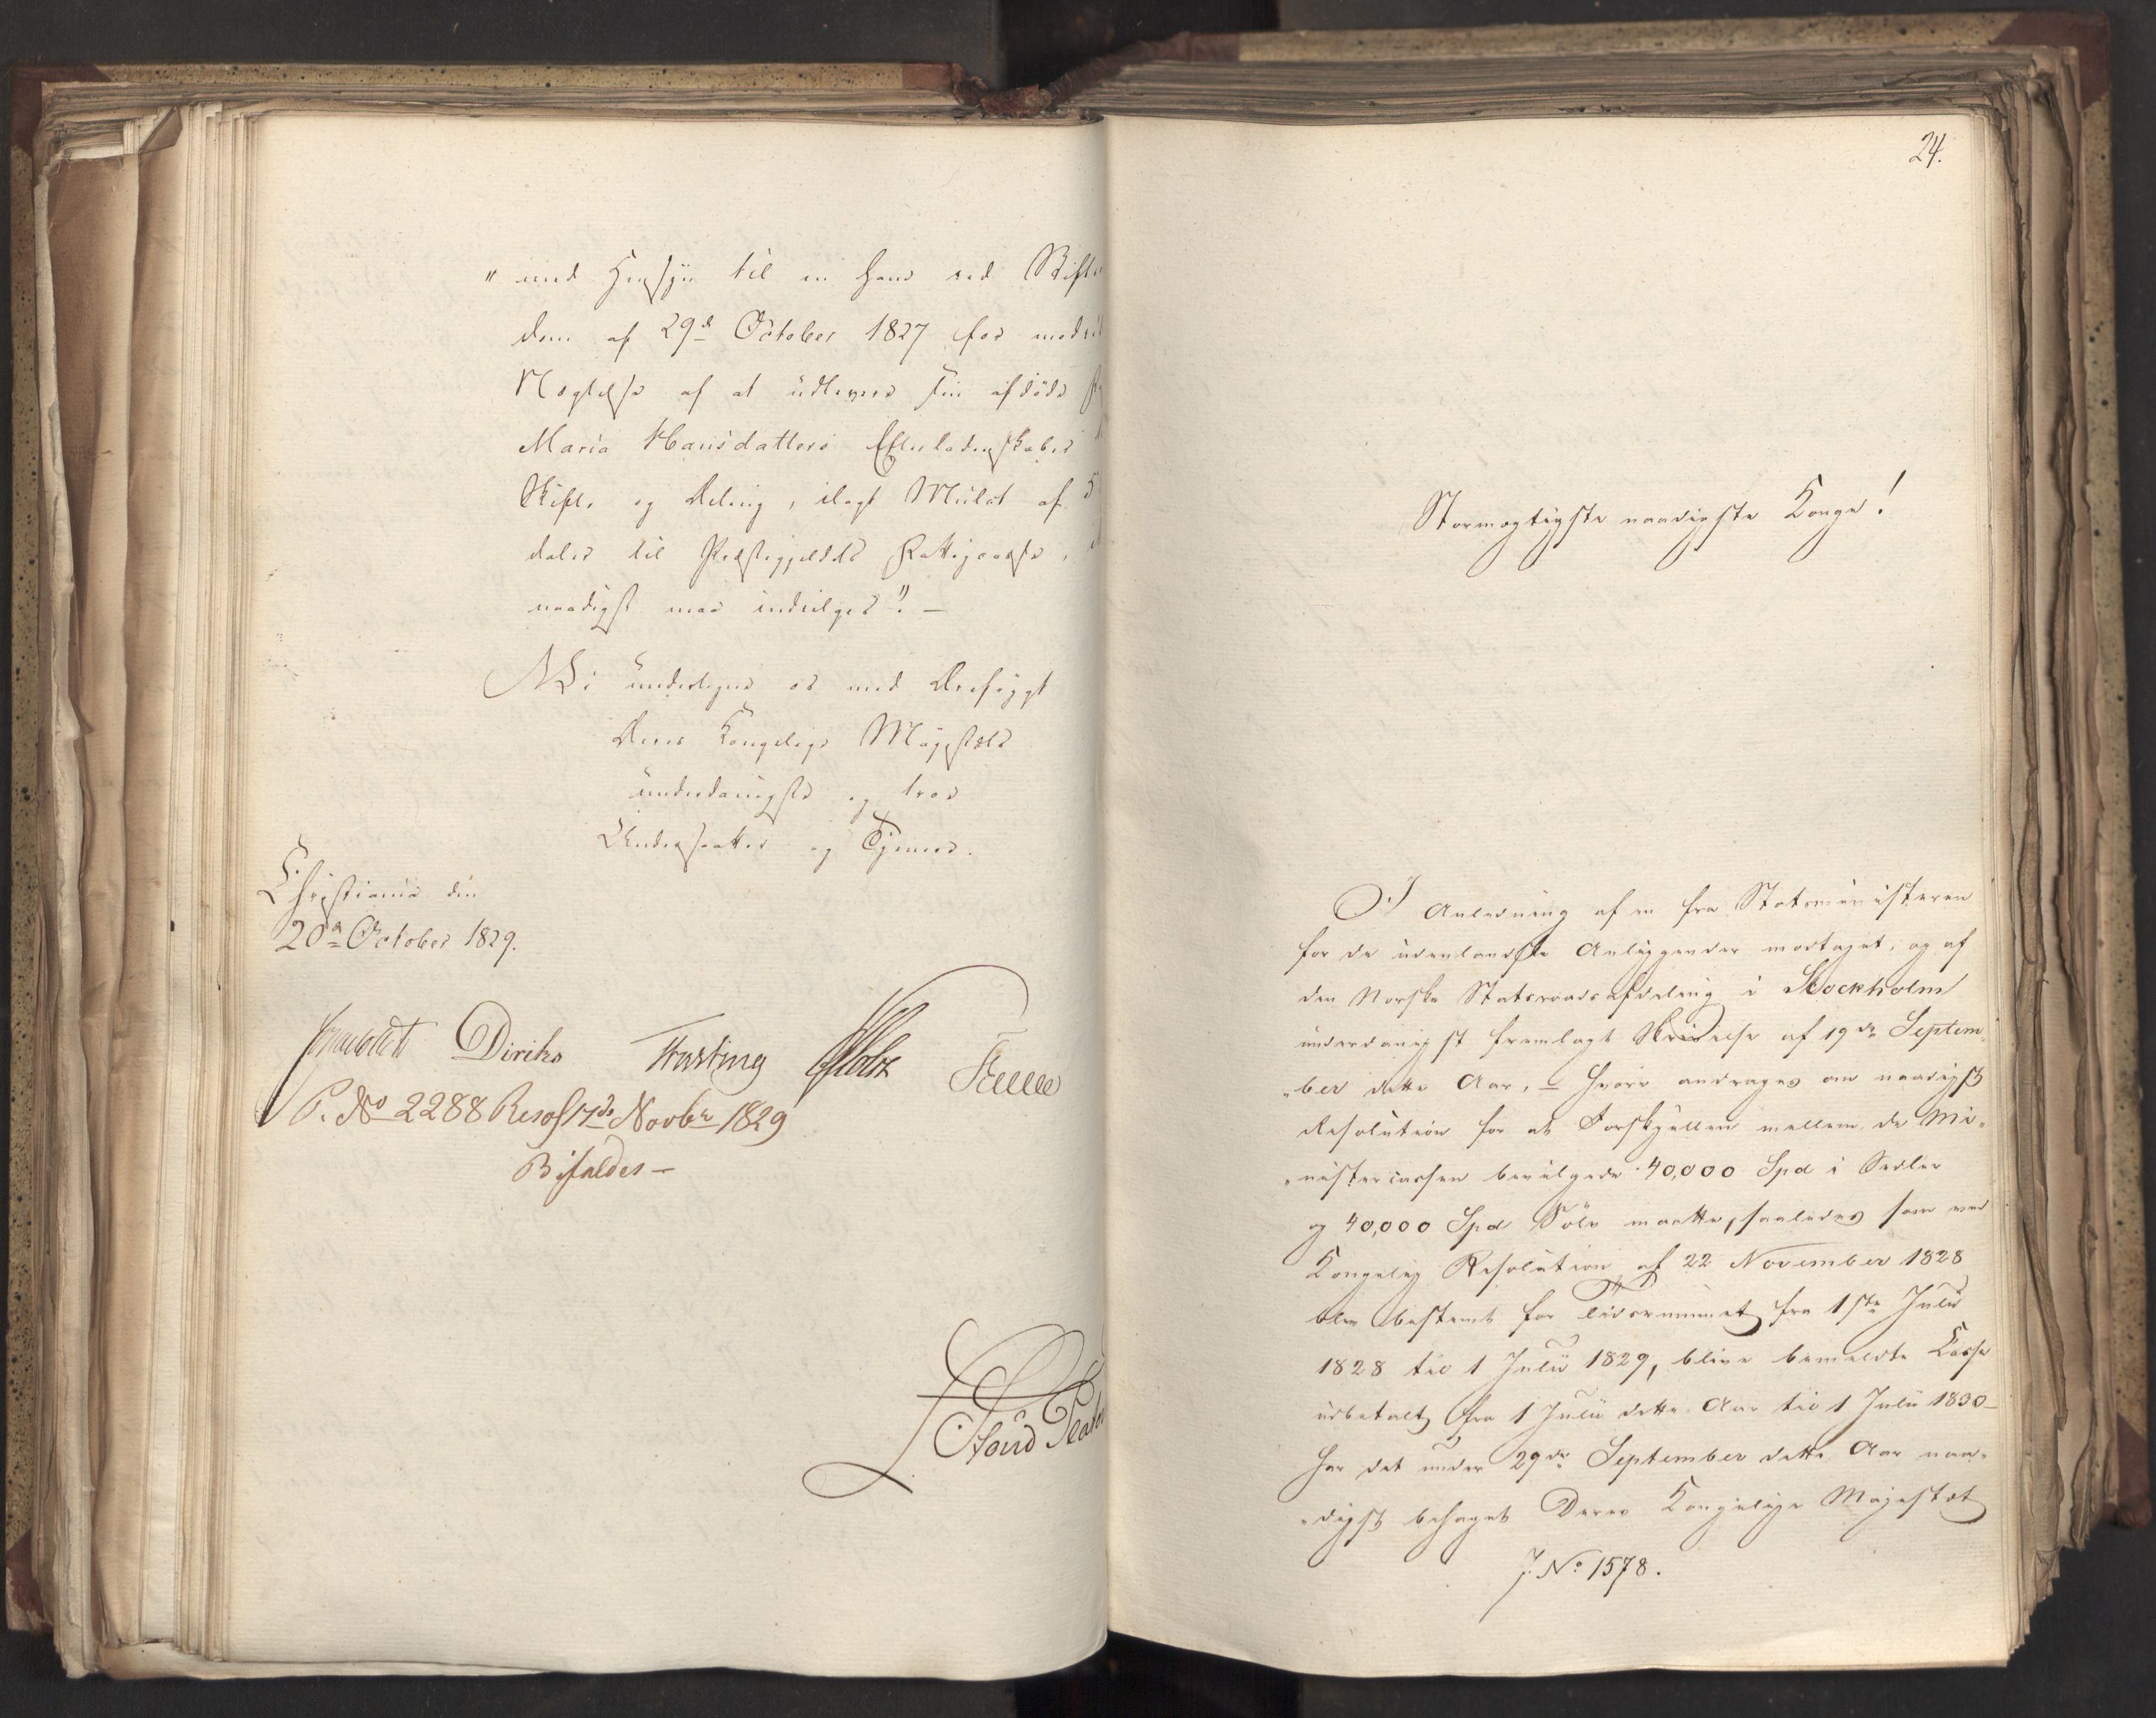 " med Hensyn til en ham ved Skifte
dom af 29d October 1827 for
Nægtelse af at udlevere sin afdöde
Maria Hansdatters Efterladenskaber
Skifte og Deling, ilagt Mulct af 5
daler til Præstegjeldets Fattigcasse,
naadigst maa eftergives". —
Vi undertegne os med Dybfölt
Deres Kongelige Majestæts
underdanigste og troe
Undersaatter og Tjenere.
Christiania den
20de October 1829.
Diriks Fasting Holst
P. No 2288 Resol 17de Novbr 1829
Bifaldes —
24.
Stormægtigste naadigste Konge!
I Anledning af en fra Statsministeren
for de udenlandske Anliggender modtaget, og af
den Norske Statsraadsafdeling i Stockholm
underdanigst fremlagt Skrivelse af 19de Septem
„ber dette Aar, — hvori andrages om naadigst
Resolution for at Forskjellen mellem de Mi„
„nistercassen bevilgede 40,000 Spd i Sedler
og 40,000 Spd Sölv maatte, saaledes som ved
Kongelig Resolution af 22 November 1828
blev bestemt for Tidsrummet fra 1ste Julii
1828 til 1 Julii 1829, blive bemeldte Casse
udbetalt fra 1 Julii dette Aar til 1 Julii 1830 —
har det under 29de September dette Aar naa„
„digst behaget Deres Kongelige Majestæt
J. No 1578.